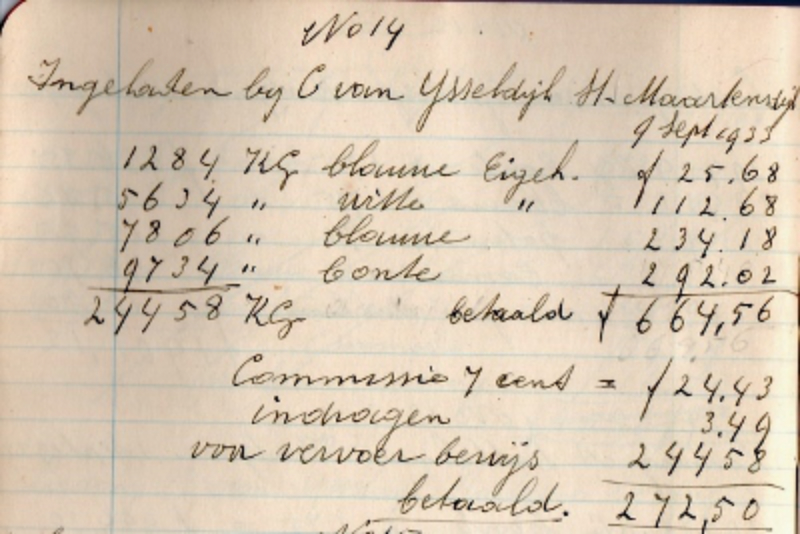 No 14
Ingeladen by C van Ysseldijk St. Maartensdijk
9 Sept 1933
1284 KG blauwe Eigeh. f 25.68
5634 " witte " 112.68
7806 " blauwe 234.18
9734 " bonte 292.02
24458 KG betaald f 664,56
Commissie 7 cent = f 24.43
indragen 3.49
voor vervoer bewijs 24458
betaald. 272,50